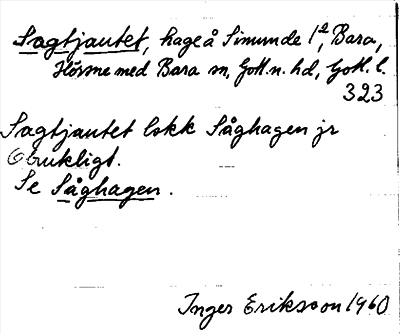 Sagtjautet, hage å Simunde 1², Bara,
Hörsne med Bara sn, Gotl. n. hd, Gotl. l.
323
Sagtjautet lokk Såghagen jr
Obrukligt.
Se Såghagen.
Inger Eriksson 1960